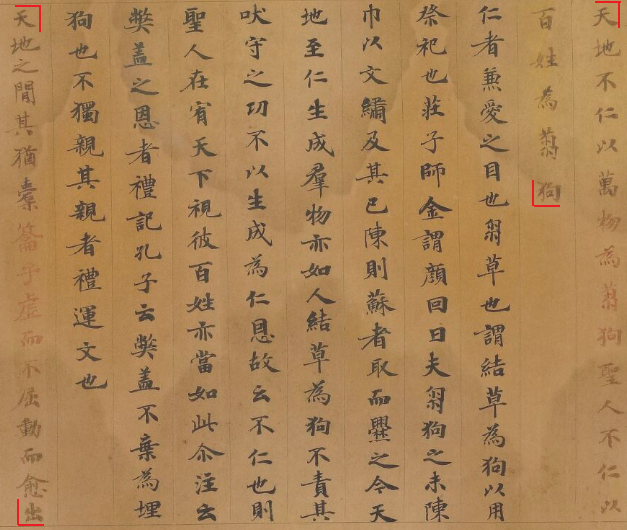 天地不仁以萬物為蒭狗聖人不仁以
百姓為蒭狗
仁者兼愛之目也芻草也謂結草為狗以用
祭祀也莊子師金謂顏回曰夫芻狗之未陳
巾以文繡及其已陳則蘇者取而爨之今天
地至仁生成羣物亦如人結草為狗不責其
吠守之功不以生成為仁恩故云不仁也則
聖人在宥天下視彼百姓亦當如此尒注云
弊盖之恩者禮記孔子云弊盖不棄為埋
狗也不獨親其親者禮運文也
天地之間其猶橐籥乎虛而不屈動而愈出